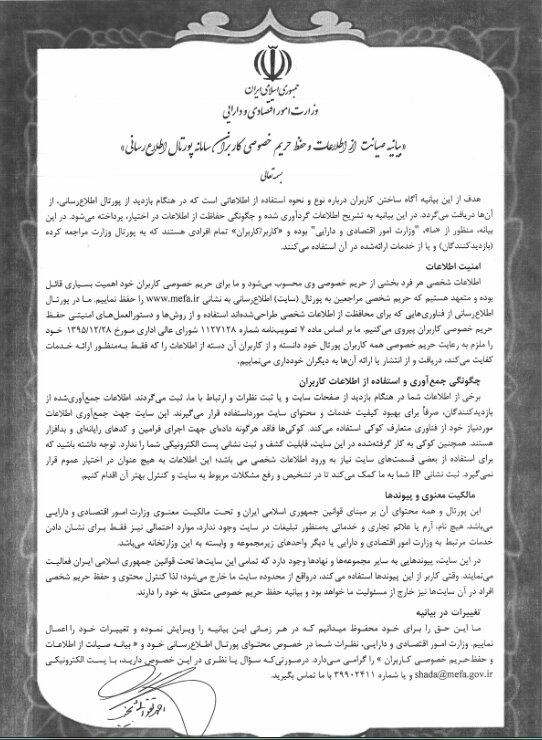 جمهوری اسلامی ایران
وزارت امور اقتصادی و دارایی
«بیانیه صیانت از اطلاعات و حفظ حریم خصوصی کاربران سامانه پورتال اطلاع رسانی»
بسمه تعالی
هدف از این بیانیه آگاه ساختن کاربران درباره نوع و نحوه استفاده از اطلاعاتی است که در هنگام بازدید از پورتال اطلاع‌رسانی، از
آن‌ها دریافت می‌گردد. در این بیانیه به تشریح اطلاعات گردآوری شده و چگونگی حفاظت از اطلاعات در اختیار، پرداخته می‌شود. در این
بیانه، منظور از «ما»، "وزارت امور اقتصادی و دارایی" بوده و «کاربر/کاربران» تمام افرادی هستند که به پورتال وزارت مراجعه کرده
(بازدیدکنندگان) و یا از خدمات ارائه‌شده در آن استفاده می‌کنند.
امنیت اطلاعات
اطلاعات شخصی هر فرد بخشی از حریم خصوصی وی محسوب می‌شود و ما برای حریم خصوصی کاربران خود اهمیت بسیاری قائل
بوده و متعهد هستیم که حریم شخصی مراجعین به پورتال (سایت) اطلاع‌رسانی به نشانی www.mefa.ir را حفظ نماییم. ما در پورتال
اطلاع‌رسانی از فناوری‌هایی که برای محافظت از اطلاعات شخصی طراحی‌شده‌اند استفاده و از روش‌ها و دستورالعمل‌های امنیتی حفظ
حریم خصوصی کاربران پیروی می‌کنیم. ما بر اساس ماده ۷ تصویب‌نامه شماره ۱۱۲۷۱۲۸ شورای عالی اداری مورخ ۱۳۹۵/۱۲/۲۸ خود
را ملزم به رعایت حریم خصوصی همه کاربران پورتال خود دانسته و از کاربران آن دسته از اطلاعات را که فقط به‌منظور ارائه خدمات
کفایت می‌کند، دریافت و از انتشار یا ارائه آن‌ها به دیگران خودداری می‌نماییم.
چگونگی جمع‌آوری و استفاده از اطلاعات کاربران
برخی از اطلاعات شما در هنگام بازدید از صفحات سایت و یا ثبت نظرات و ارتباط با ما، ثبت می‌گردند. اطلاعات جمع‌آوری‌شده از
بازدیدکنندگان، صرفاً برای بهبود کیفیت خدمات و محتوای سایت مورداستفاده قرار می‌گیرند. این سایت جهت جمع‌آوری اطلاعات
موردنیاز خود از فناوری متعارف کوکی استفاده می‌کند. کوکی‌ها فاقد هرگونه داده‌ای جهت اجرای فرامین و کدهای رایانه‌ای و بدافزار
هستند. همچنین کوکی به کار گرفته‌شده در این سایت، قابلیت کشف و ثبت نشانی پست الکترونیکی شما را ندارد. توجه داشته باشید که
برای استفاده از بعضی قسمت‌های سایت نیاز به ورود اطلاعات شخصی می باشد؛ این اطلاعات به هیچ عنوان در اختیار عموم قرار
نمی‌گیرد. ثبت نشانی IP شما به ما کمک می‌کند تا در تشخیص و رفع مشکلات مربوط به سایت و کنترل بهتر آن اقدام کنیم.
مالکیت معنوی و پیوندها
این پورتال و همه محتوای آن بر مبنای قوانین جمهوری اسلامی ایران و تحت مالکیت معنوی وزارت امور اقتصادی و دارایی
می‌باشد. هیچ نام، آرم یا علائم تجاری و خدماتی به‌منظور تبلیغات در سایت وجود ندارد، موارد احتمالی نیز فقط برای نشان دادن
خدمات مرتبط به وزارت امور اقتصادی و دارایی یا دیگر واحدهای زیرمجموعه و وابسته به این وزارتخانه می‌باشد.
در این سایت، پیوندهایی به سایر مجموعه‌ها و نهادها وجود دارد که تمامی این سایت‌ها تحت قوانین جمهوری اسلامی ایران فعالیت
می‌نمایند. وقتی کاربر از این پیوندها استفاده می کند، درواقع از محدوده سایت ما خارج می‌شود؛ لذا کنترل محتوی و حفظ حریم شخصی
افراد در آن سایت‌ها نیز خارج از مسئولیت ما خواهد بود و بیانیه حفظ حریم خصوصی متعلق به خود را دارند.
تغییرات در بیانیه
ما این حق را برای خود محفوظ میدانیم که در هر زمانی این بیانیه را ویرایش نموده و تغییرات خود را اعمال
نماییم. وزارت امور اقتصادی و دارایی، نظرات شما در خصوص محتوای پورتال اطلاع‌رسانی خود و « بیانه صیانت از اطلاعات
و حفظ حریم خصوصی کاربران » را گرامی می‌دارد. درصورتی‌که سؤال یا نظری در این خصوص دارید، با پست الکترونیکی
shada@mefa.gov.ir و یا شماره ۳۹۹۰۲۴۱۱ با ما تماس بگیرید.